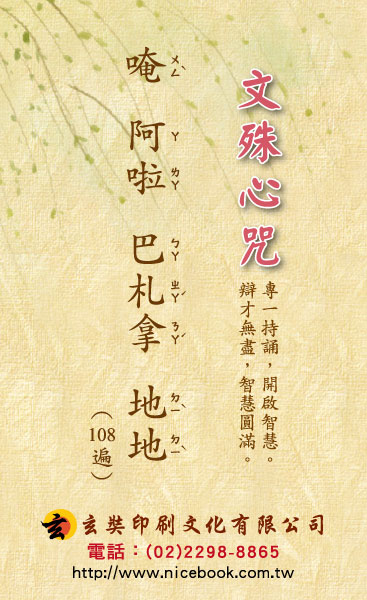 文殊心咒
專一持誦，開啟智慧。
辯才無盡，智慧圓滿。
唵 阿啦 巴札拿 地地
ㄨㄥˋ ㄚ ㄌㄚ ㄅㄚ ㄓㄚˊ ㄋㄚˊ ㄉㄧˋ ㄉㄧˋ
（108遍）
玄奘印刷文化有限公司
電話：(02)2298-8865
http://www.nicebook.com.tw